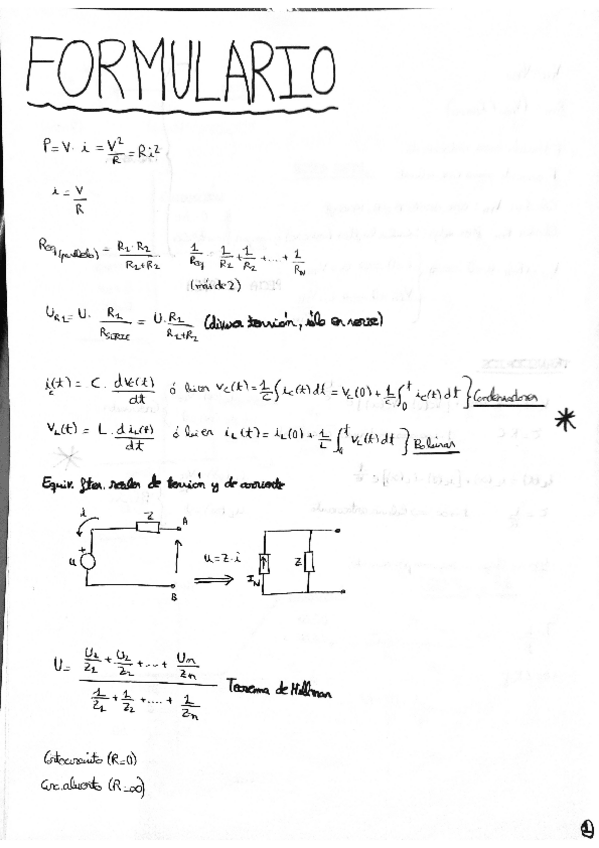 FORMULARIO
P = V · i = V²/R = Ri²
i = V/R
Req(paralelo) = R1 · R2 / R1+R2    1/Req = 1/R1 + 1/R2 + ... + 1/RN
(más de 2)
UR1 = U · R1/RSERIE = U · R1/R1+R2 (divisor tensión, sólo en serie)
ic(t) = C · dVc(t)/dt ó bien Vc(t) = 1/C ∫ ic(t) dt = Vc(0) + 1/C ∫₀ᵗ ic(t) dt } Condensadores
VL(t) = L · d iL(t)/dt ó bien iL(t) = iL(0) + 1/L ∫₀ᵗ VL(t) dt } Bobinas
*
Equiv. ftes. reales de tensión y de corriente
i Z A
u + B
u = Z · i
IN Z
U = U1/Z1 + U2/Z2 + ... + Un/Zn / 1/Z1 + 1/Z2 + .... + 1/Zn Teorema de Millman
Cortocircuito (R=0)
Circ. abierto (R=∞)
1